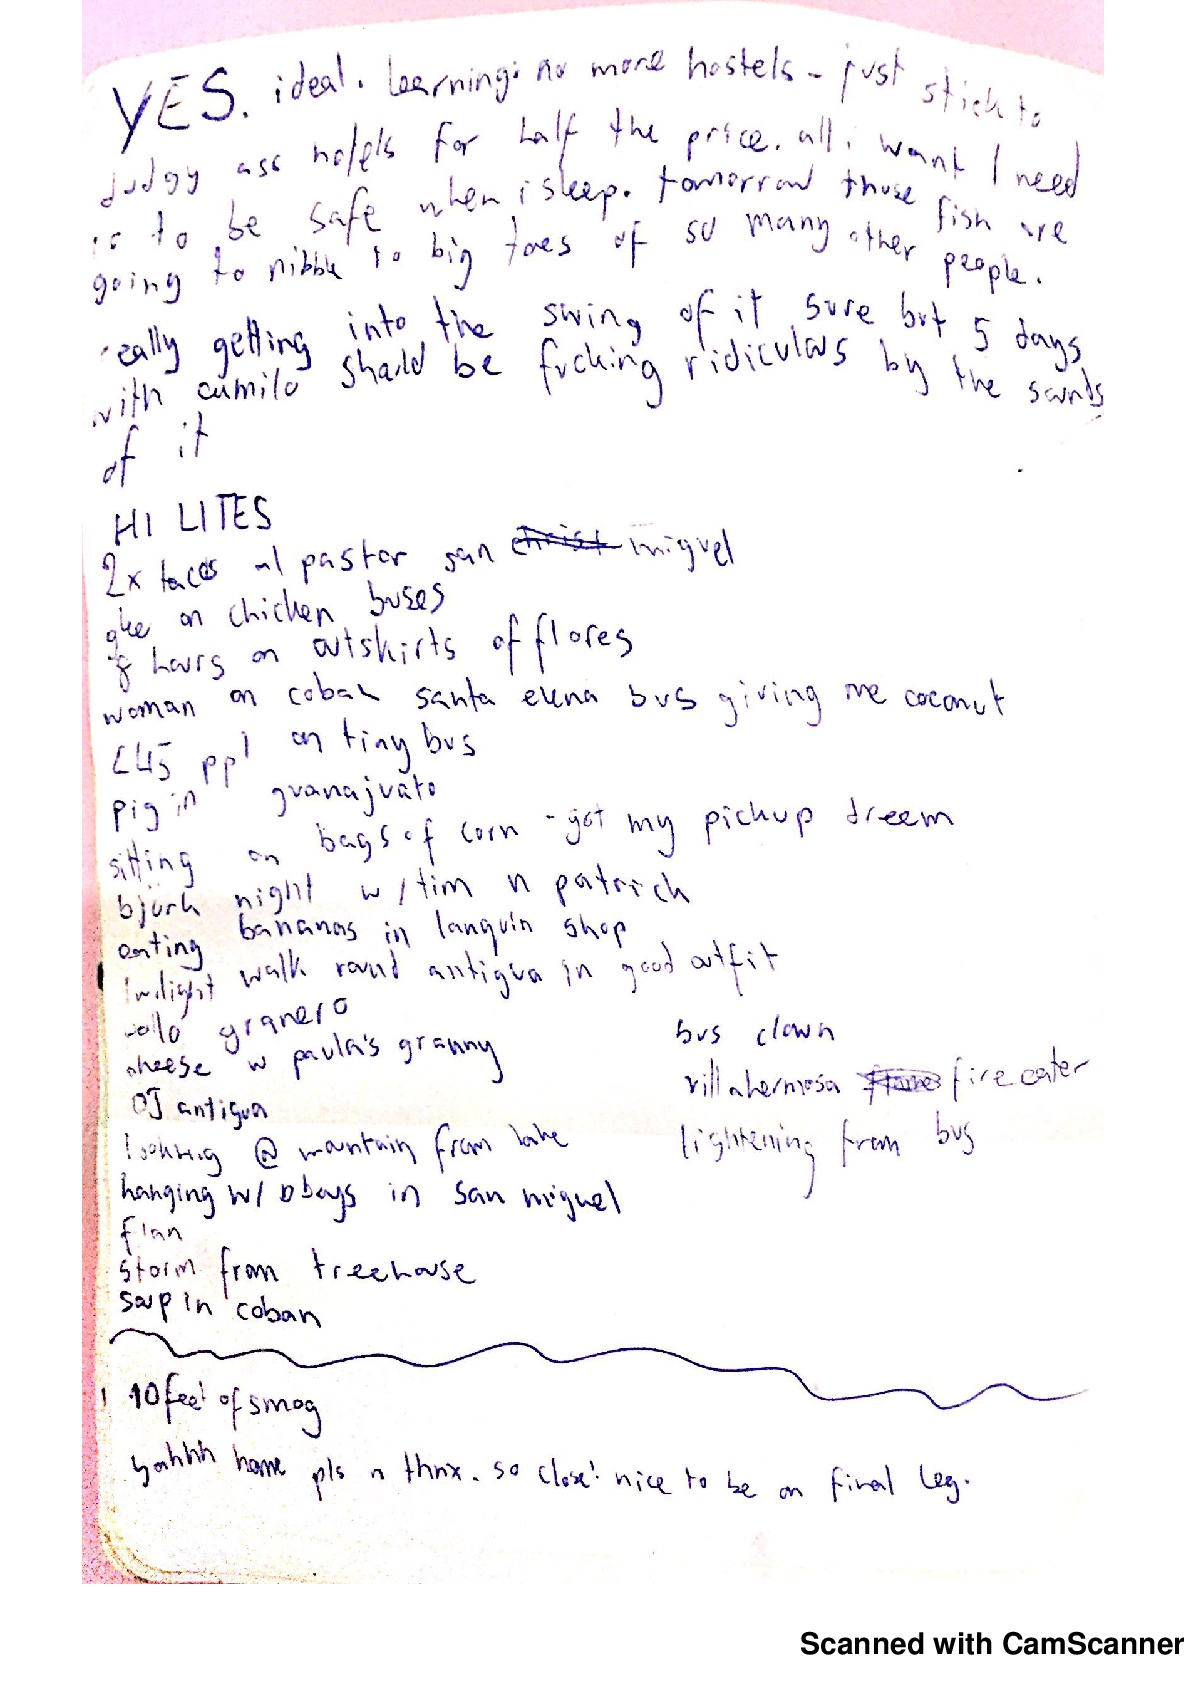 YES. ideal. learning: no more hostels - just stick to
dudgy ass hotels for half the price. all i want / need
is to be safe when i sleep. tomorrow those fish are
going to nibble to big toes of so many other people.
really getting into the swing of it sure but 5 days
with camilo should be fucking ridiculous by the sounds
of it
HI LITES
2x tacos al pastor san miguel
glee on chicken buses
8 hours on outskirts of flores
woman on coban santa elena bus giving me coconut
<45 ppl on tiny bus
pig in guanajuato
sitting on bags of corn - got my pickup dreem
bjork night w/ tim n patrick
eating bananas in lanquin shop
twilight walk round antigua in good outfit
granero
cheese w paula's granny
OJ antigua
looking @ mountain from lake
hanging w/ boys in san miguel
flan
storm from treehouse
soup in coban
bus clown
villahermosa fire eater
lightening from bus
10 feet of smog
gahhhh home pls n thnx. so close! nice to be on final leg.
Scanned with CamScanner